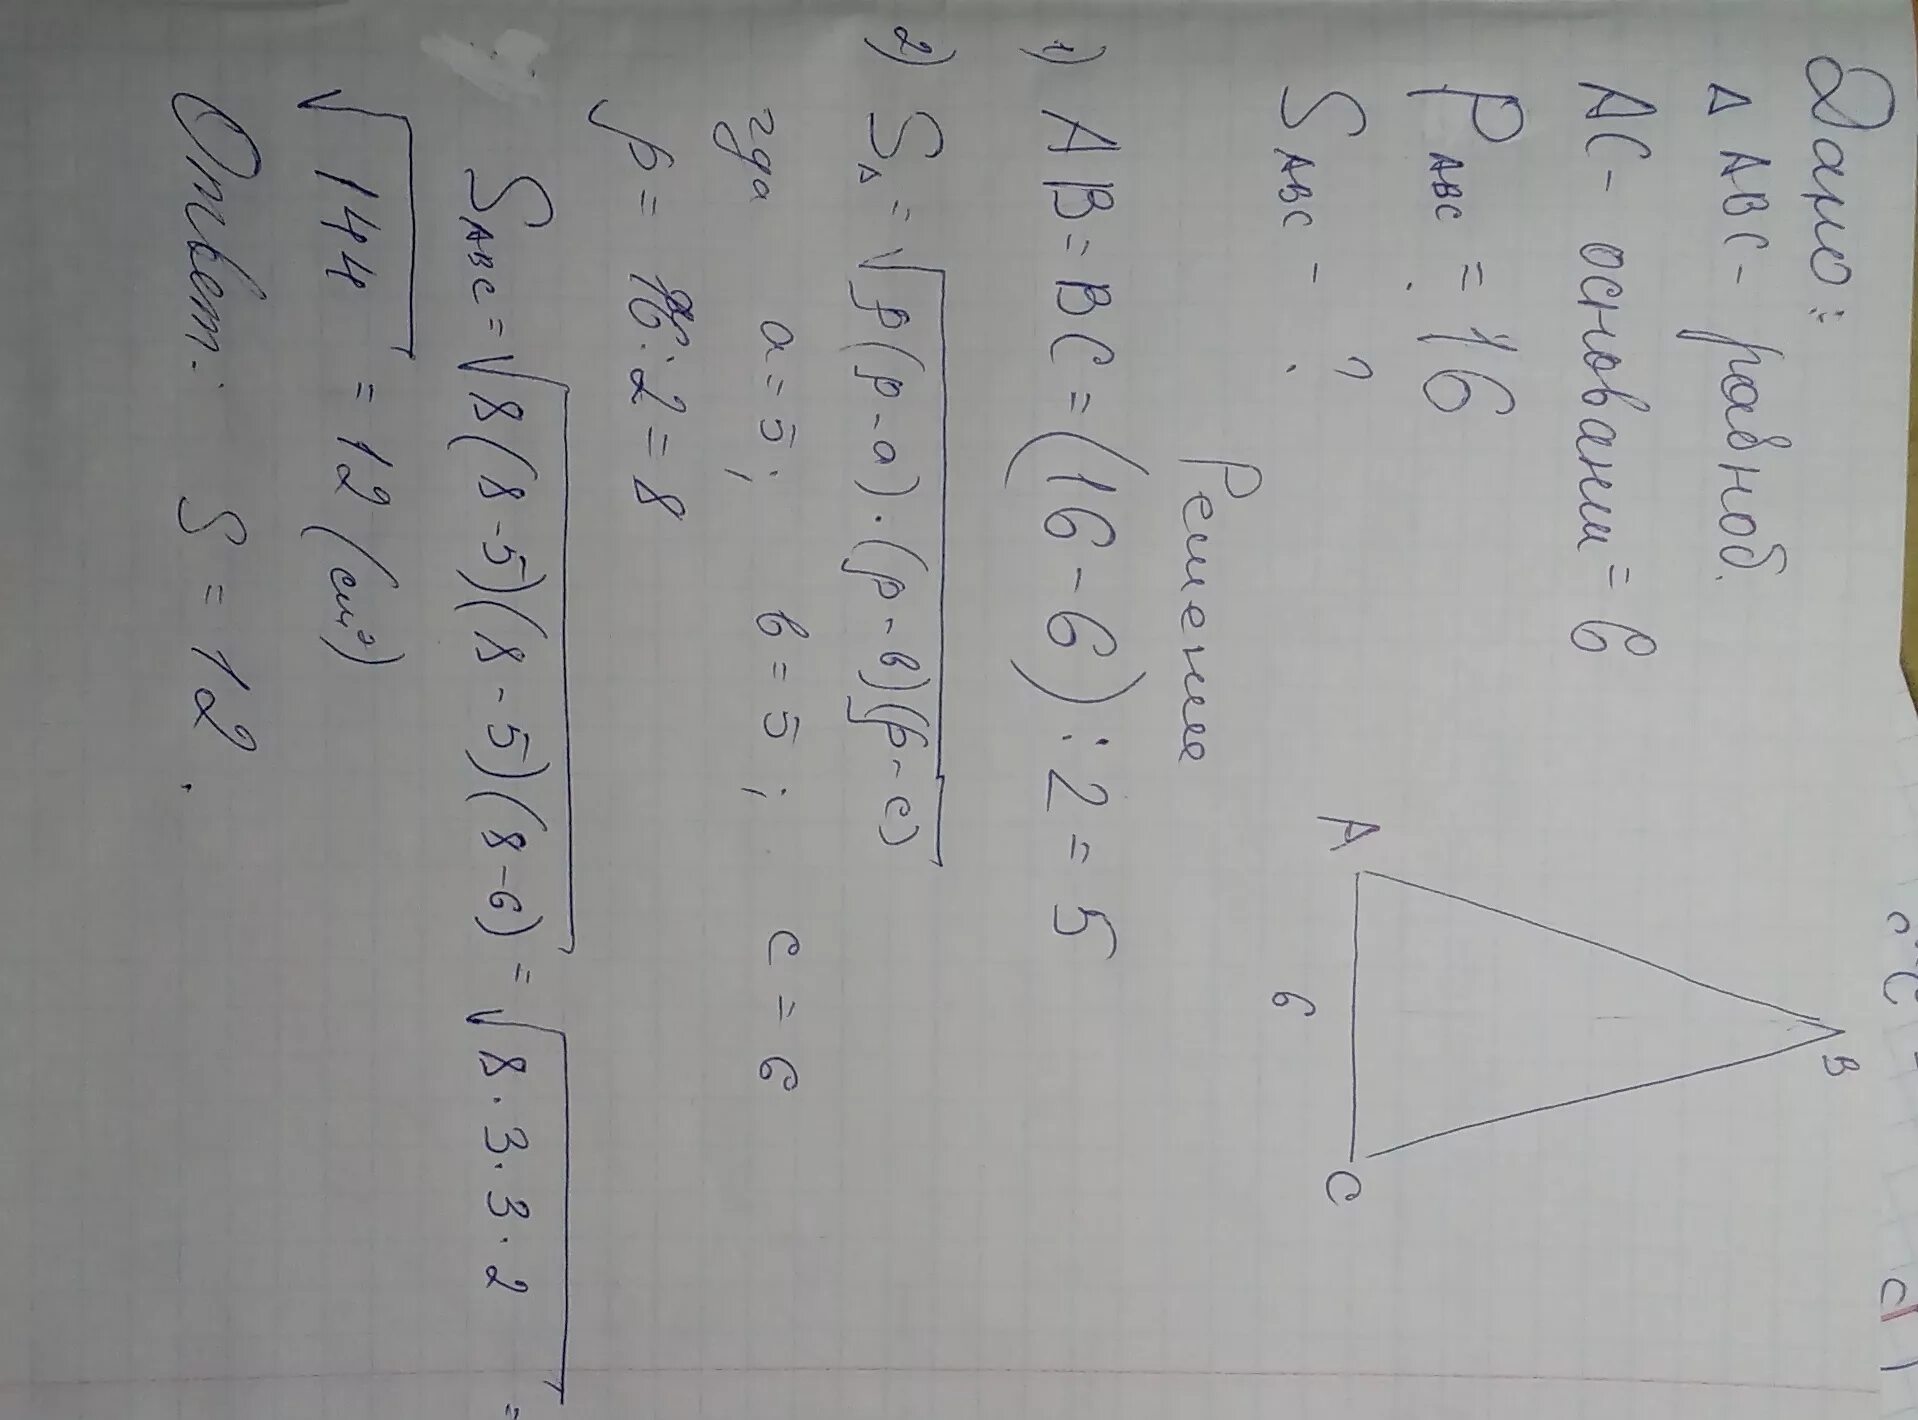 Дано:
∆ ABC - равноб.
AC - основании = 6
P ABC = 16
S ABC - ?
B
A
C
6
Решение
1) AB = BC = (16 - 6) : 2 = 5
2) S∆ = √p(p-a)·(p-в)(p-c)
где a = 5; в = 5; c = 6
p = 16 : 2 = 8
S ABC = √8(8-5)(8-5)(8-6) = √8·3·3·2 =
√144 = 12 (см²)
Ответ: S = 12.